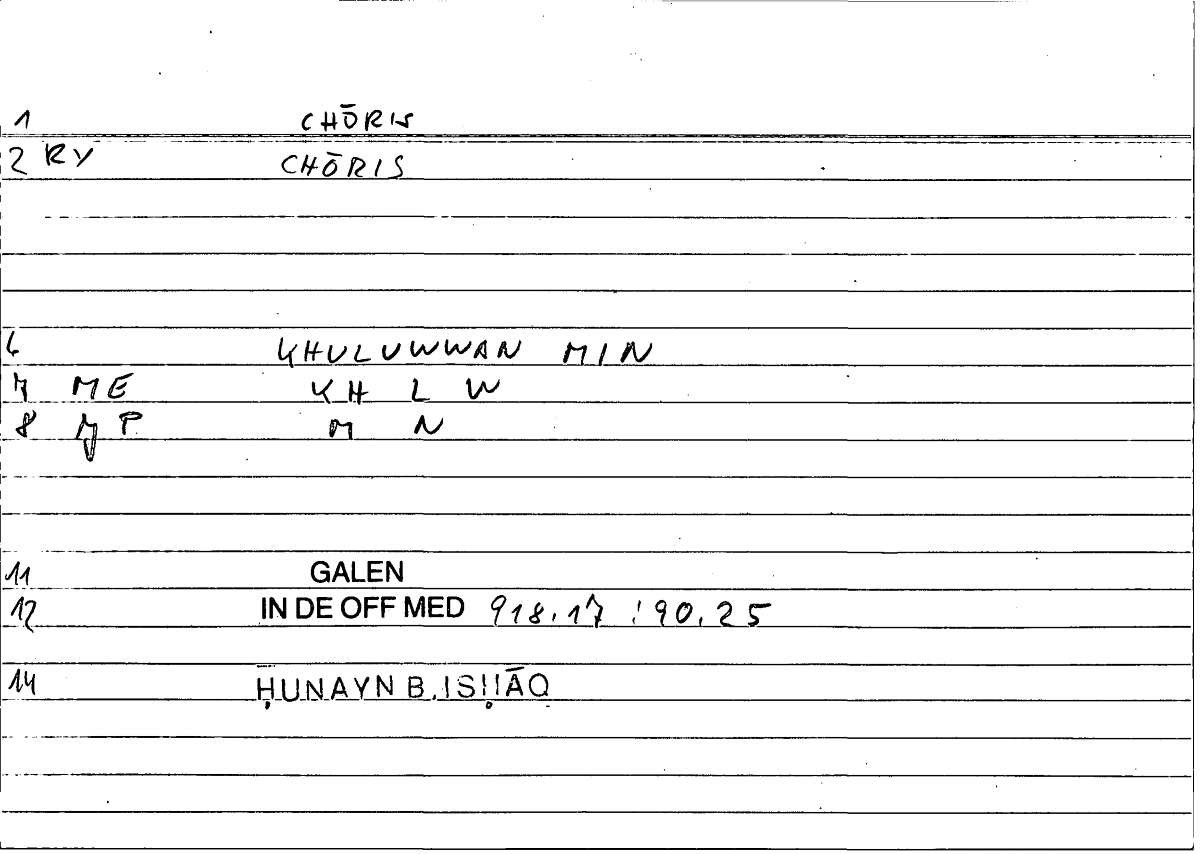 1 CHŌRIS
2 RY CHŌRIS
6 KHULUWWAN MIN
7 ME KH L W
8 P M N
11 GALEN
12 IN DE OFF MED 918.17 : 90.25
14 ḤUNAYN B. ISḤĀQ